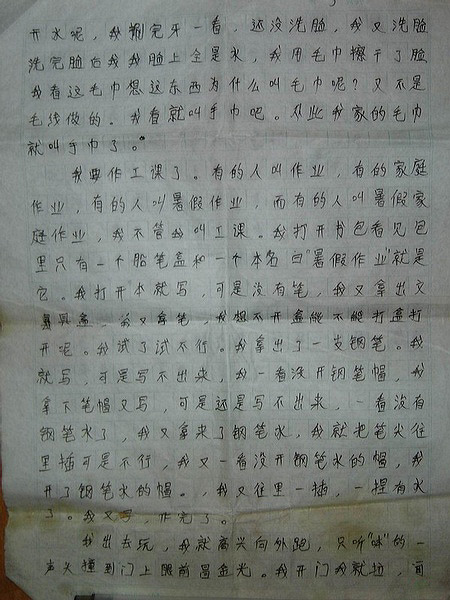 开水呢,我刷完牙一看,还没洗脸,我又洗脸
洗完脸后我我脸上全是水,我用毛巾擦干了脸
我看这毛巾想这东西为什么叫毛巾呢?又不是
毛线做的。我看就叫手巾吧。从此我家的毛巾
就叫手巾了。
我要作工课了。有的人叫作业,有的家庭
作业,有的人叫暑假作业,而有的人叫暑假家
庭作业,我不管我叫工课。我打开书包看见包
里只有一个铅笔盒和一个本名曰"暑假作业"就是
它。我打开本就写,可是没有笔,我又拿出文
具盒,又拿笔,我想不开盒能不能打盒打
开泥。我试了试不行。我拿出了一支钢笔。我
就写,可是写不出来,我一看没开钢笔帽,我
拿下笔帽又写,可是还是写不出来,一看没有
钢笔水了,我又拿来了钢笔水,我就把笔尖往
里插可是不行,我又一看没开钢笔水的帽,我
开了钢笔水的帽。,我又往里一插,一捏有水
了。我又写,作完了。
我出去玩,我就高兴向外跑,只听"咚"的一
声头撞到门上眼前冒金光。我开门我就拉,前